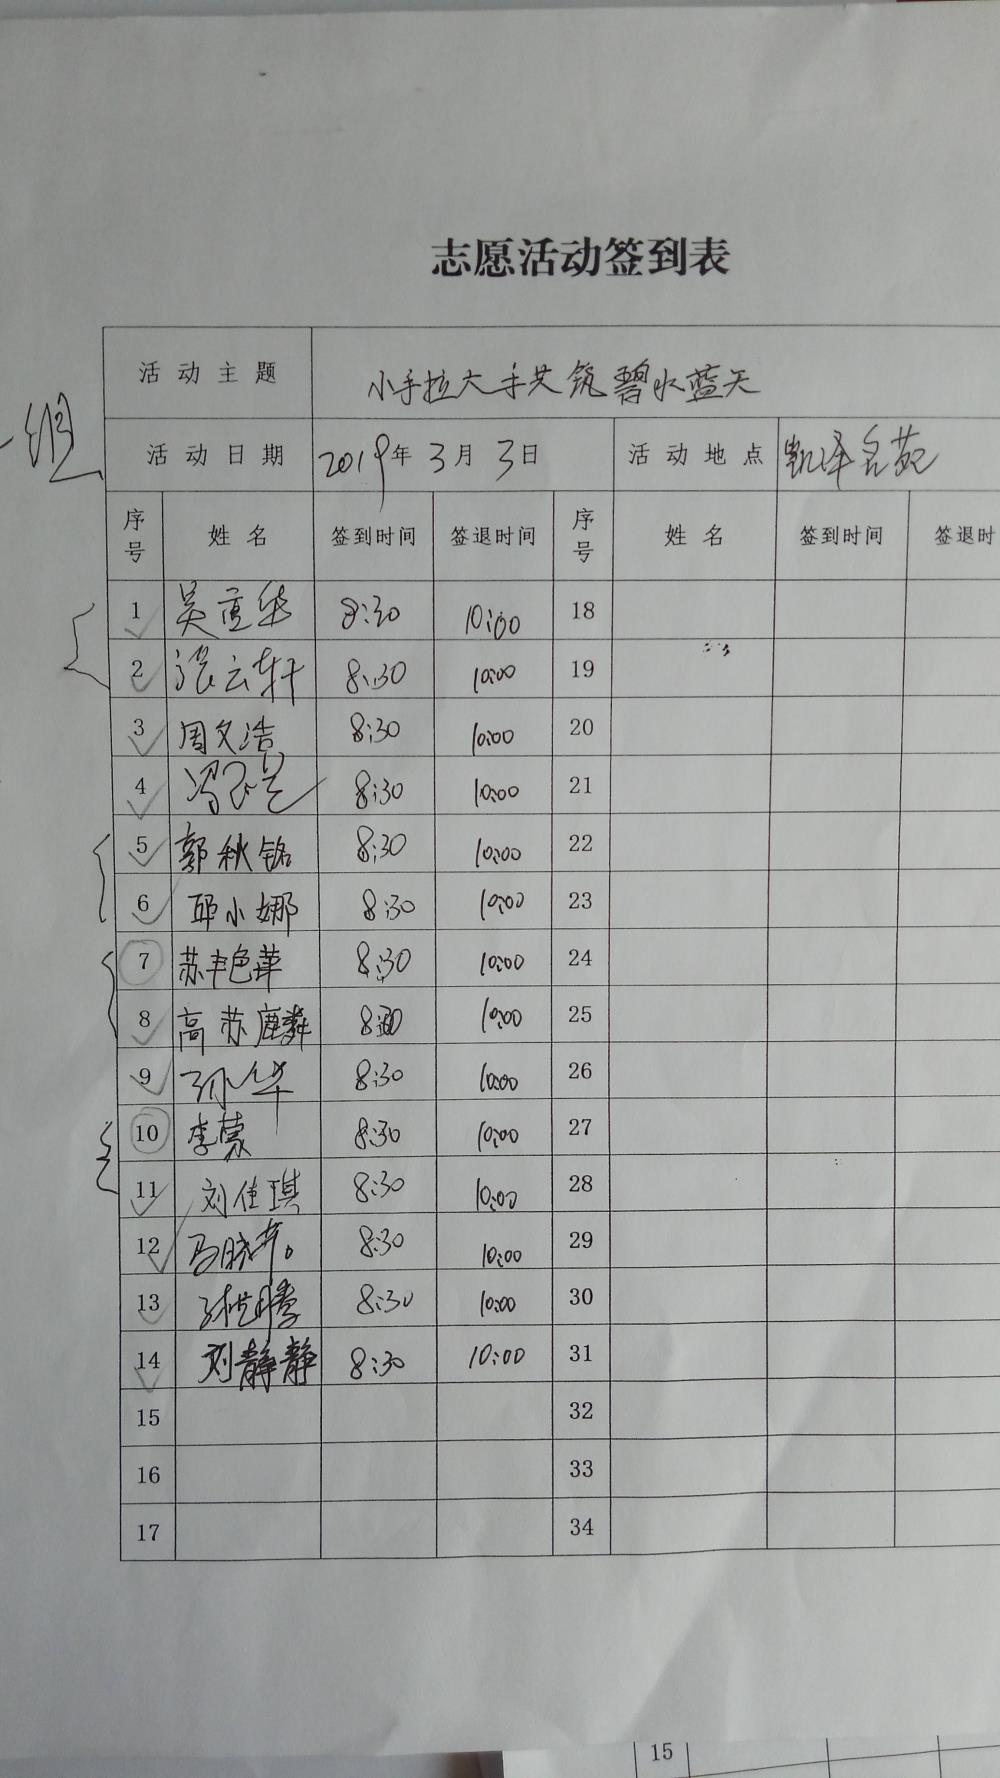 志愿活动签到表
活动主题 小手拉大手共筑碧水蓝天
一组
活动日期 2019年3月3日 活动地点 凯泽名苑
序号 姓名 签到时间 签退时间 序号 姓名 签到时间 签退时
1 吴宜华 8:30 10:00 18
2 张云轩 8:30 10:00 19
3 周文浩 8:30 10:00 20
4 8:30 10:00 21
5 郭秋铭 8:30 10:00 22
6 邱小娜 8:30 10:00 23
7 苏丰色華 8:30 10:00 24
8 高苏麟 8:30 10:00 25
9 孙华 8:30 10:00 26
10 李蒙 8:30 10:00 27
11 刘佳琪 8:30 10:00 28
12 8:30 10:00 29
13 8:30 10:00 30
14 刘静静 8:30 10:00 31
15 32
16 33
17 34
15